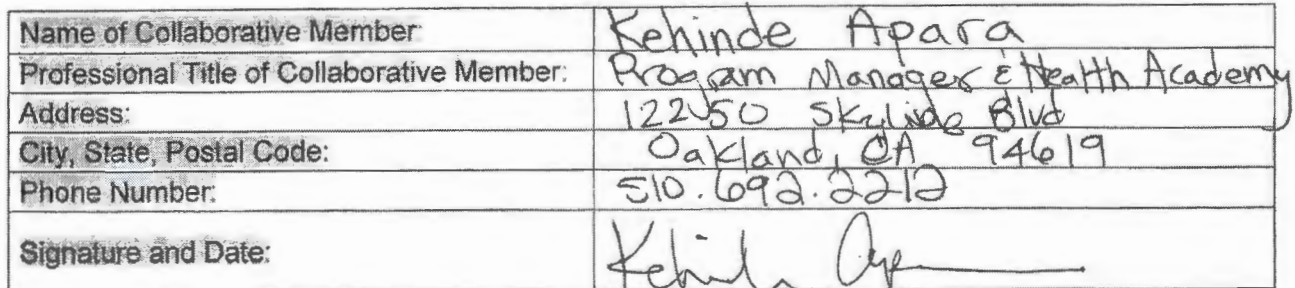 Name of Collaborative Member: Kehinde Apara
Professional Title of Collaborative Member: Program Manager & Health Academy
Address: 12250 Skyline Blvd
City, State, Postal Code: Oakland, CA 94619
Phone Number: 510.692.2212
Signature and Date: